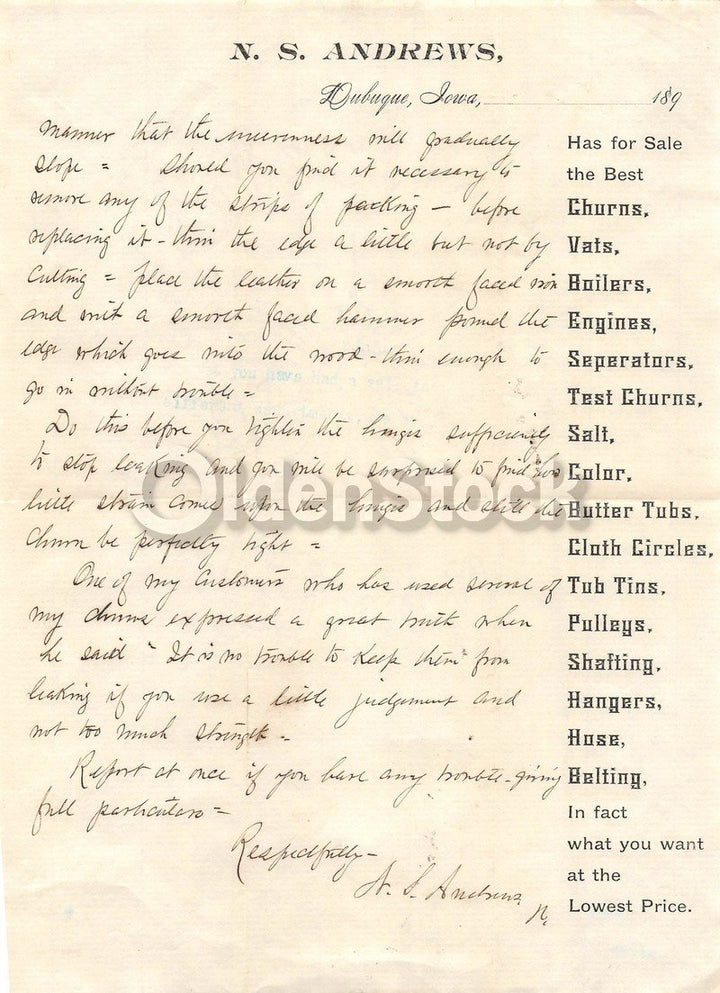 N. S. ANDREWS,
Dubuque, Iowa, 189
manner that the unevenness will gradually
slope = should you find it necessary to
remove any of the strips of packing – before
replacing it – thin the edge a little but not by
cutting = place the leather on a smooth faced iron
and with a smooth faced hammer pound the
edge which goes into the wood – thin enough to
go in without trouble =
Do this before you tighten the hinges sufficiently
to stop leaking and you will be surprised to find how
little strain comes upon the hinges and still the
churn be perfectly tight =
One of my customers who has used several of
my churns expressed a great truth when
he said "It is no trouble to keep them" from
leaking if you use a little judgement and
not too much strength =
Report at once if you have any trouble – giving
full particulars =
Respectfully –
N. S. Andrews
Has for Sale
the Best
Churns,
Vats,
Boilers,
Engines,
Seperators,
Test Churns,
Salt,
Color,
Butter Tubs,
Cloth Circles,
Tub Tins,
Pulleys,
Shafting,
Hangers,
Hose,
Belting,
In fact
what you want
at the
Lowest Price.
OldenStock